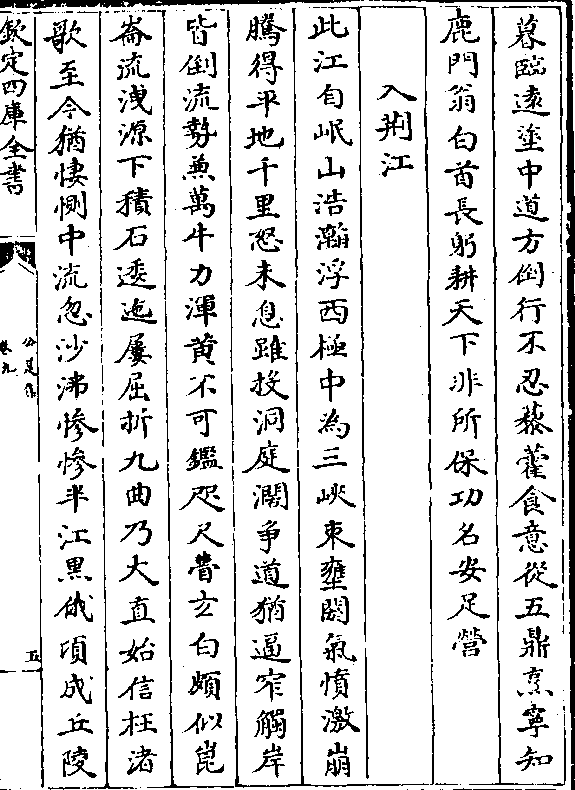 暮臨遠塗中道方倒行不忍藜藿食意從五鼎烹寧知
鹿門翁白首長躬耕天下非所保功名安足營
入荆江
此江自岷山浩瀚浮西極中為三峽東壅閼氣憤激崩
騰得平地千里怒未息雖投洞庭濶爭道猶逼窄觸岸
皆倒流勢兼萬牛力渾黄不可鑑咫尺瞢玄白頗似崑
崙流洩源下積石逶迤屢屈折九曲乃大直始信枉渚
歌至今猶悽惻中流忽沙沸慘慘半江黒俄頃成丘陵
欽定四庫全書
公是集
卷九
五